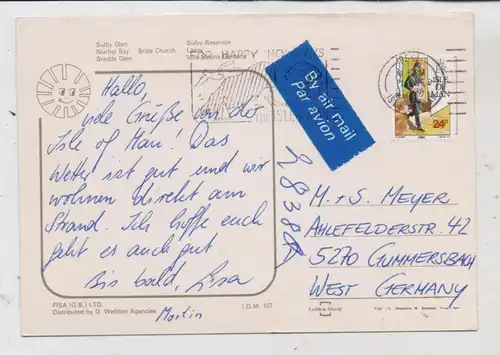 Sulby Glen
Niarbyl Bay Bride Church
Bradda Glen
Sulby Reservoir
Laxey
FOR HAPPY HOLIDAYS
By air mail
Par avion
ISLE
OF
MAN
24p
Hallo,
viele Grüße von der
Isle of Man. Das
Wetter ist gut und wir
wohnen direkt am
Strand. Ich hoffe euch
geht es auch gut.
Bis bald, Lisa
Martin
M.+S. MEYER
AHLEFELDERSTR. 42
5270 GUMMERSBACH
WEST GERMANY
FISA (G.B.) LTD.
Distributed by D. Wellton Agencies
I.O.M. 107